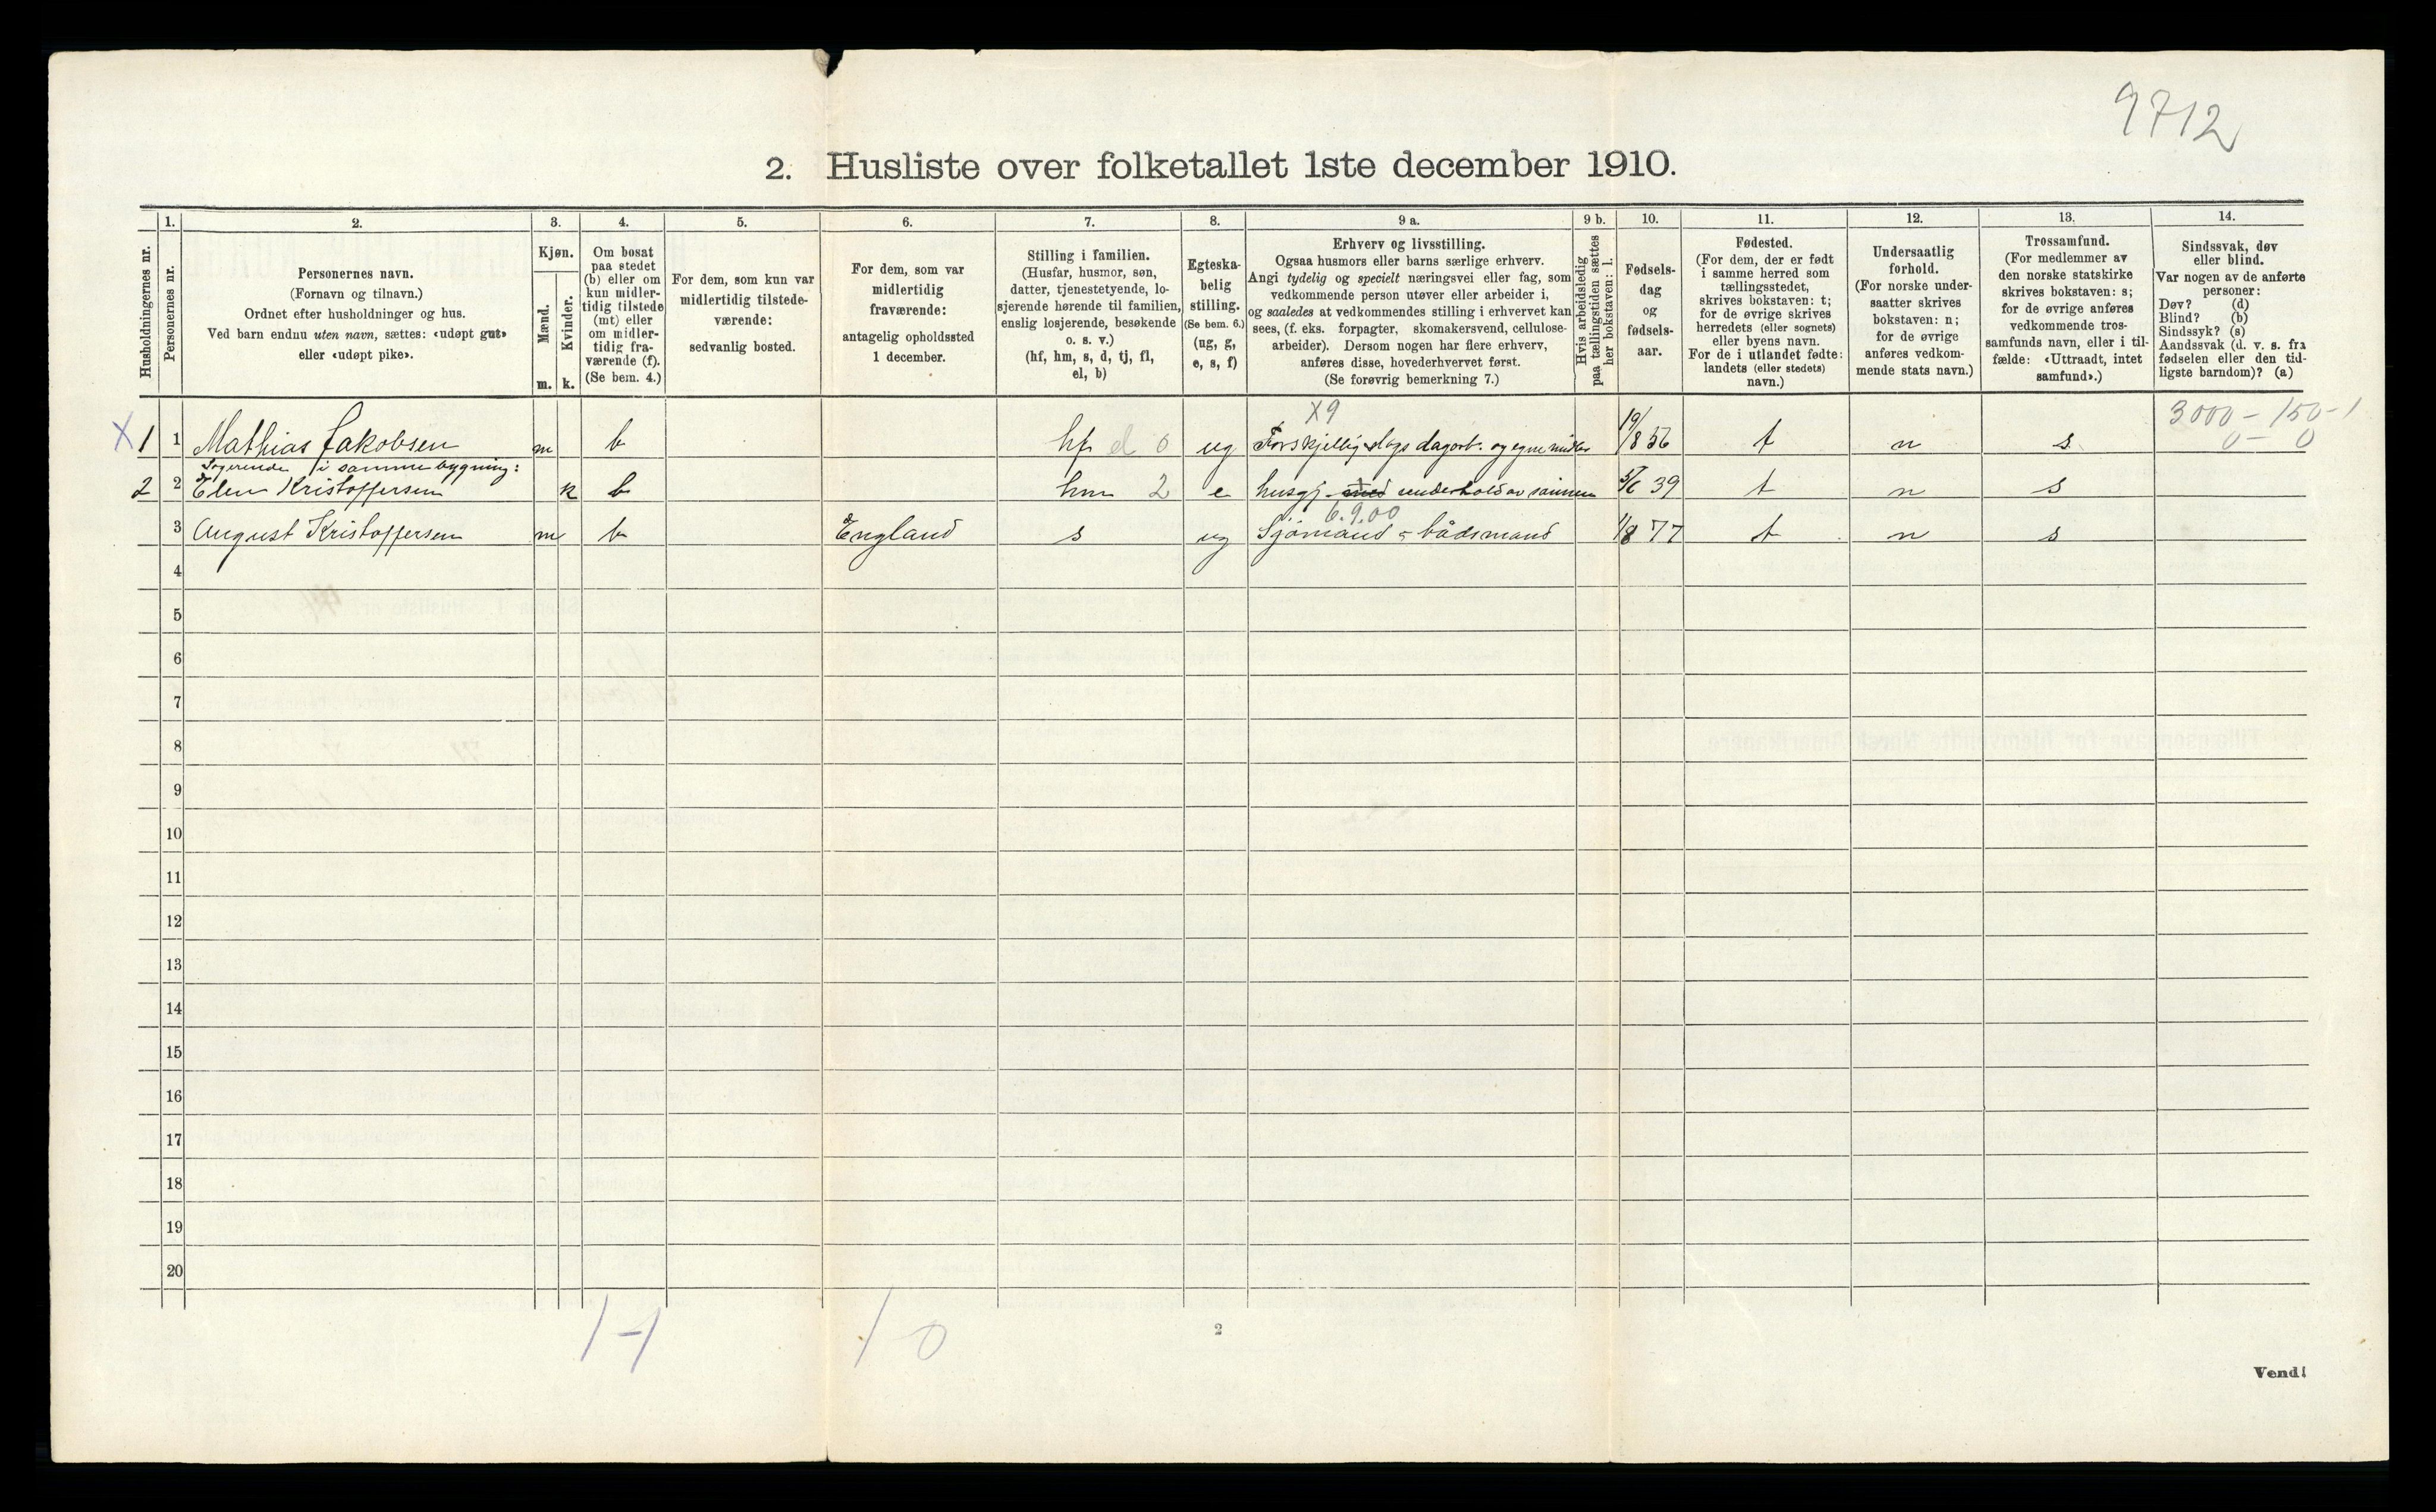 9712
2. Husliste over folketallet 1ste december 1910.
Husholdningernes nr.
1.
Personernes nr.
2.
Personernes navn.
(Fornavn og tilnavn.)
Ordnet efter husholdninger og hus.
Ved barn endnu uten navn, sættes: «udøpt gut»
eller «udøpt pike».
3.
Kjøn.
Mænd.
Kvinder.
m. k.
4.
Om bosat
paa stedet
(b) eller om
kun midler-
tidig tilstede
(mt) eller
om midler-
tidig fra-
værende (f).
(Se bem. 4.)
5.
For dem, som kun var
midlertidig tilstede-
værende:
sedvanlig bosted.
6.
For dem, som var
midlertidig
fraværende:
antagelig opholdssted
1 december.
7.
Stilling i familien.
(Husfar, husmor, søn,
datter, tjenestetyende, lo-
sjerende hørende til familien,
enslig losjerende, besøkende
o. s. v.)
(hf, hm, s, d, tj, fl,
el, b)
8.
Egteska-
belig
stilling.
(Se bem. 6.)
(ug, g,
e, s, f)
9 a.
Erhverv og livsstilling.
Ogsaa husmors eller barns særlige erhverv.
Angi tydelig og specielt næringsvei eller fag, som
vedkommende person utøver eller arbeider i,
og saaledes at vedkommendes stilling i erhvervet kan
sees, (f. eks. forpagter, skomakersvend, cellulose-
arbeider). Dersom nogen har flere erhverv,
anføres disse, hovederhvervet først.
(Se forøvrig bemerkning 7.)
9 b.
Hvis arbeidsledig
paa tællingstiden sættes
her bokstaven: l.
10.
Fødsels-
dag
og
fødsels-
aar.
11.
Fødested.
(For dem, der er født
i samme herred som
tællingsstedet,
skrives bokstaven: t;
for de øvrige skrives
herredets (eller sognets)
eller byens navn.
For de i utlandet fødte:
landets (eller stedets)
navn.)
12.
Undersaatlig
forhold.
(For norske under-
saatter skrives
bokstaven: n;
for de øvrige
anføres vedkom-
mende stats navn.)
13.
Trossamfund.
(For medlemmer av
den norske statskirke
skrives bokstaven: s;
for de øvrige anføres
vedkommende tros-
samfunds navn, eller i til-
fælde: «Uttraadt, intet
samfund».)
14.
Sindssvak, døv
eller blind.
Var nogen av de anførte
personer:
Døv? (d)
Blind? (b)
Sindssyk? (s)
Aandssvak (d. v. s. fra
fødselen eller den tid-
ligste barndom)? (a)
X9 3000 - 150 - 1
0 - 0
X 1 1 Mathias Jakobsen m b hf d 0 ug Forskjellig slags dagarb. og egne midler 19/8 56 t n s
Logerende i samme bygning:
2 2 Elen Kristoffersen k b hm 2 e husgj. med underhold av sønnen 5/6 39 t n s
6.9.00
3 August Kristoffersen m b England s ug Sjømand - bådsmand 1/8 77 t n s
4
5
6
7
8
9
10
11
12
13
14
15
16
17
18
19
20
1-1 1 0
2
Vend!